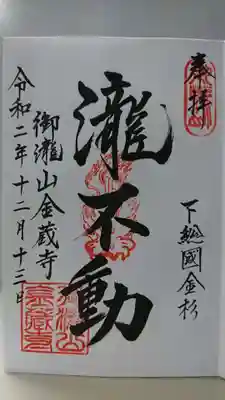 奉拝
下総國金杉
瀧不動
御瀧山金蔵寺
令和二年十二月十三日